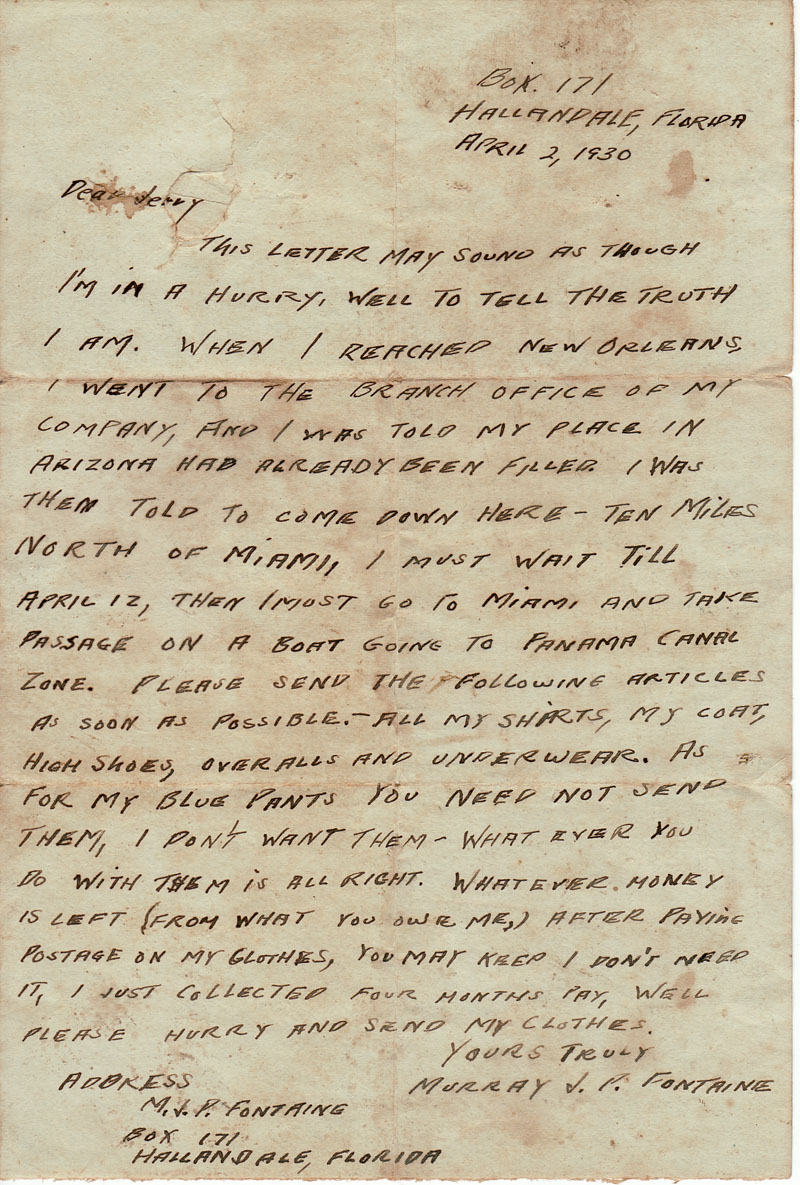 Box. 171
HALLANDALE, FLORIDA
APRIL 2, 1930
Dear Jerry
THIS LETTER MAY SOUND AS THOUGH
I'M IN A HURRY, WELL TO TELL THE TRUTH
I AM. WHEN I REACHED NEW ORLEANS,
I WENT TO THE BRANCH OFFICE OF MY
COMPANY, AND I WAS TOLD MY PLACE IN
ARIZONA HAD ALREADY BEEN FILLED. I WAS
THEN TOLD TO COME DOWN HERE – TEN MILES
NORTH OF MIAMI, I MUST WAIT TILL
APRIL 12, THEN I MUST GO TO MIAMI AND TAKE
PASSAGE ON A BOAT GOING TO PANAMA CANAL
ZONE. PLEASE SEND THE FOLLOWING ARTICLES
AS SOON AS POSSIBLE.– ALL MY SHIRTS, MY COAT,
HIGH SHOES, OVERALLS AND UNDERWEAR. AS
FOR MY BLUE PANTS YOU NEED NOT SEND
THEM, I DON'T WANT THEM – WHAT EVER YOU
DO WITH THEM IS ALL RIGHT. WHATEVER MONEY
IS LEFT (FROM WHAT YOU OWE ME,) AFTER PAYING
POSTAGE ON MY CLOTHES, YOU MAY KEEP I DON'T NEED
IT, I JUST COLLECTED FOUR MONTHS PAY, WELL
PLEASE HURRY AND SEND MY CLOTHES.
YOURS TRULY
MURRAY J. P. FONTAINE
ADDRESS
M.J.P. FONTAINE
BOX 171
HALLANDALE, FLORIDA